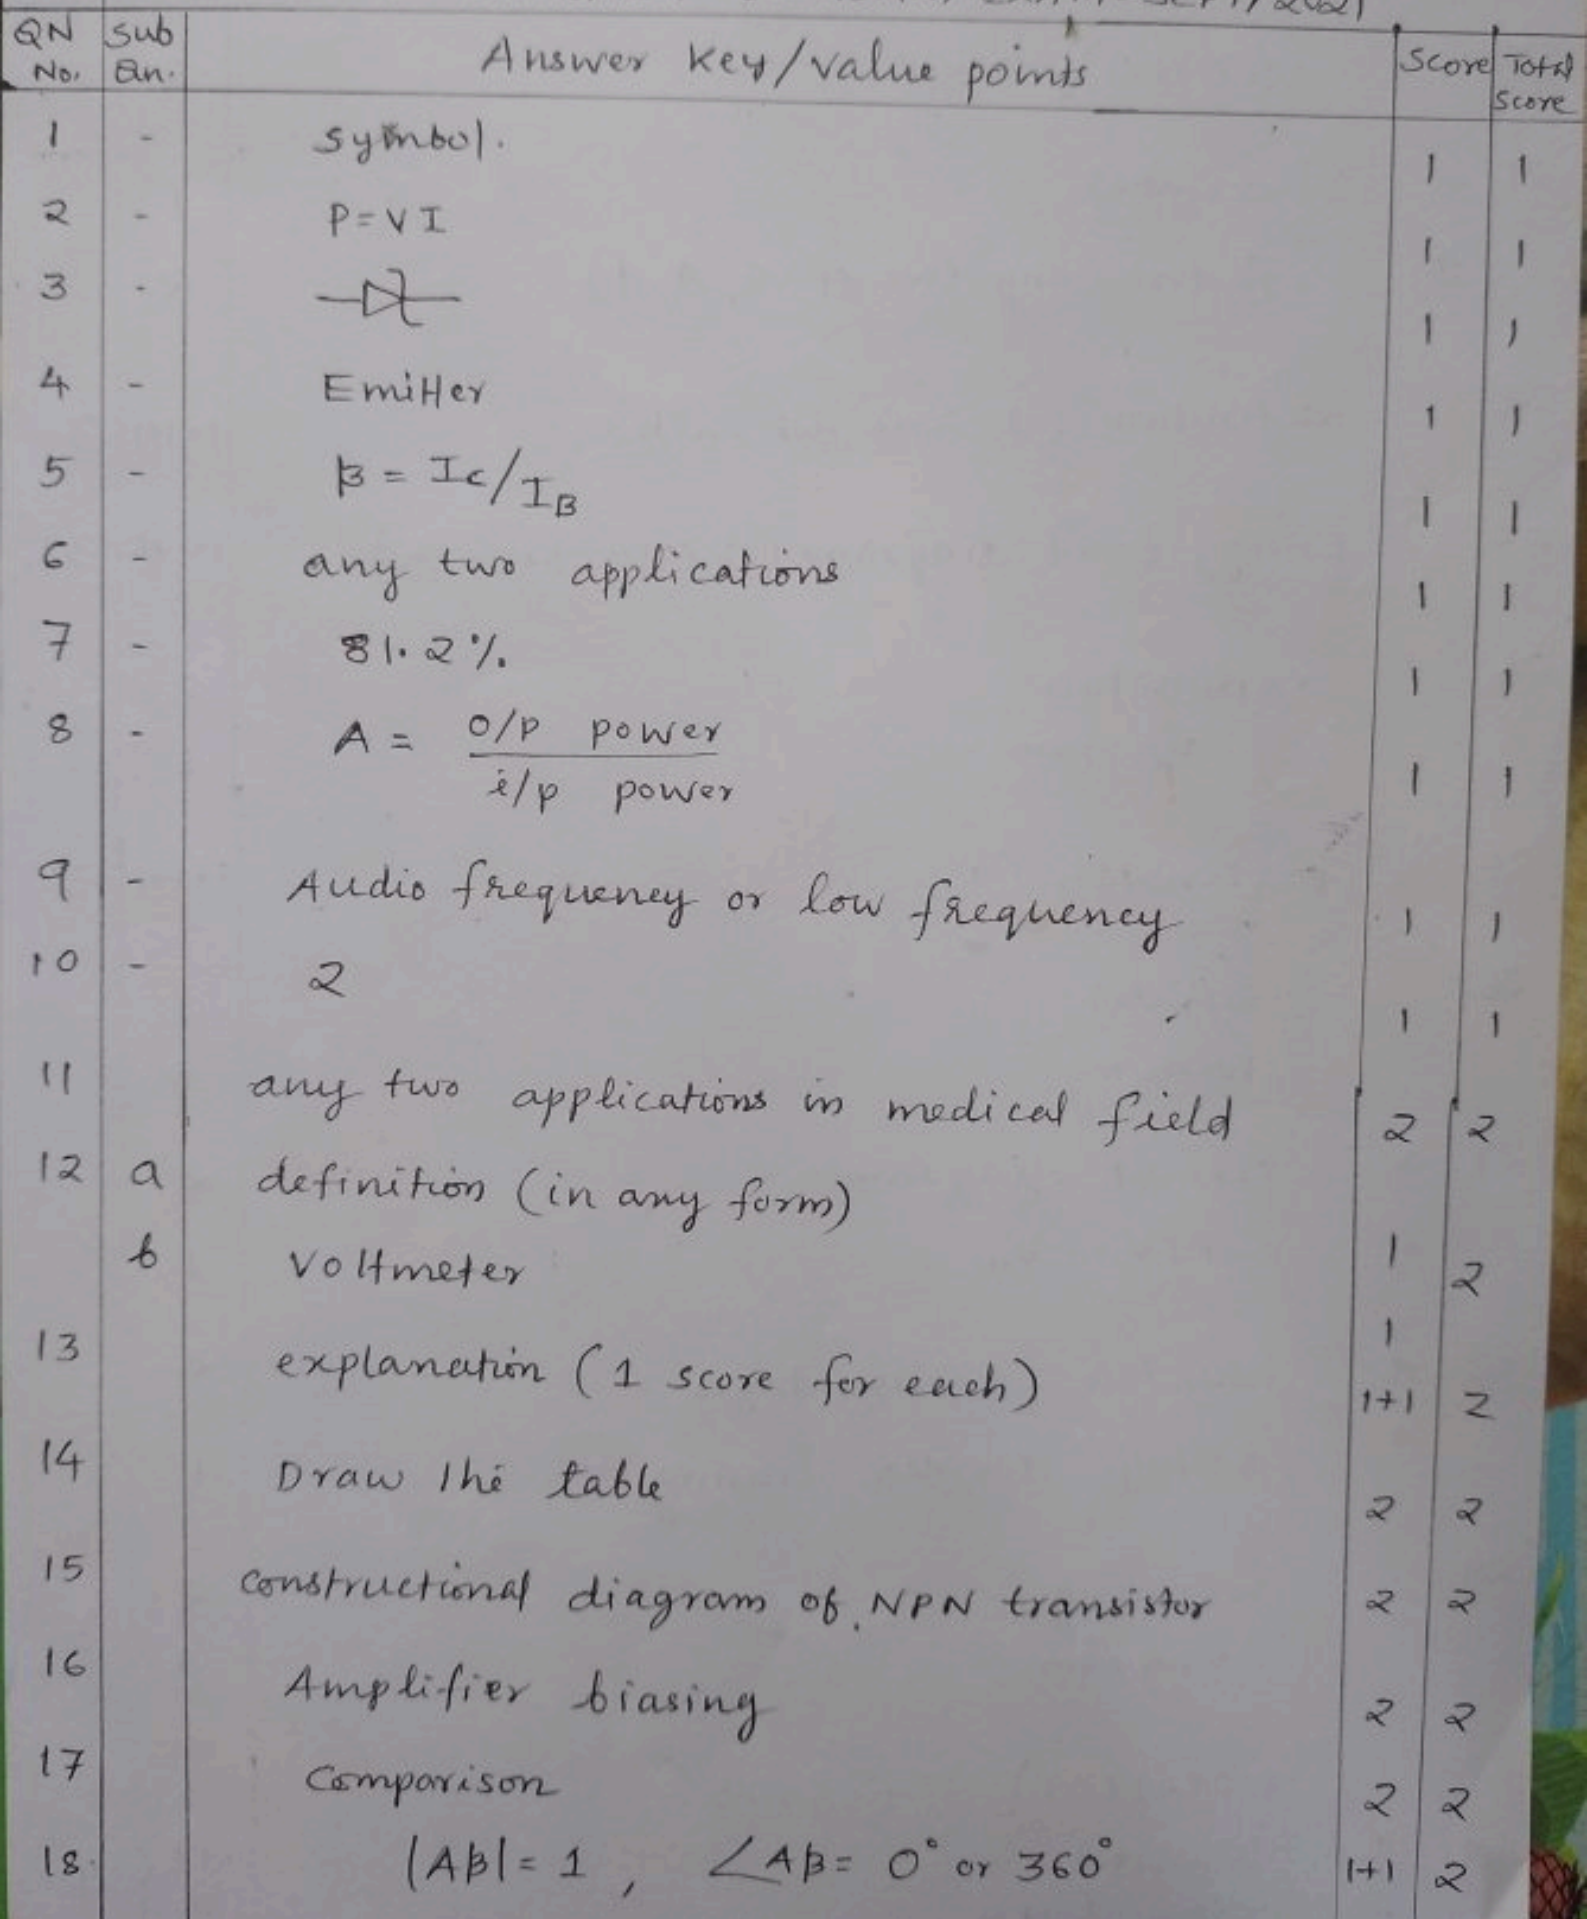 SEPT/2021
QN No. Sub Qn. Answer key/value points Score Total Score
1 - Symbol. 1 1
2 - P=VI 1 1
3 - 1 1
4 - Emitter 1 1
5 - β = Ic/IB 1 1
6 - any two applications 1 1
7 - 81.2%. 1 1
8 - A = o/p power / i/p power 1 1
9 - Audio frequency or low frequency 1 1
10 - 2 1 1
11 any two applications in medical field 2 2
12 a definition (in any form) 1
b Voltmeter 1 2
13 explanation (1 score for each) 1+1 2
14 Draw the table 2 2
15 Constructional diagram of NPN transistor 2 2
16 Amplifier biasing 2 2
17 Comparison 2 2
18. |Aβ|= 1 , ∠Aβ= 0° or 360° 1+1 2